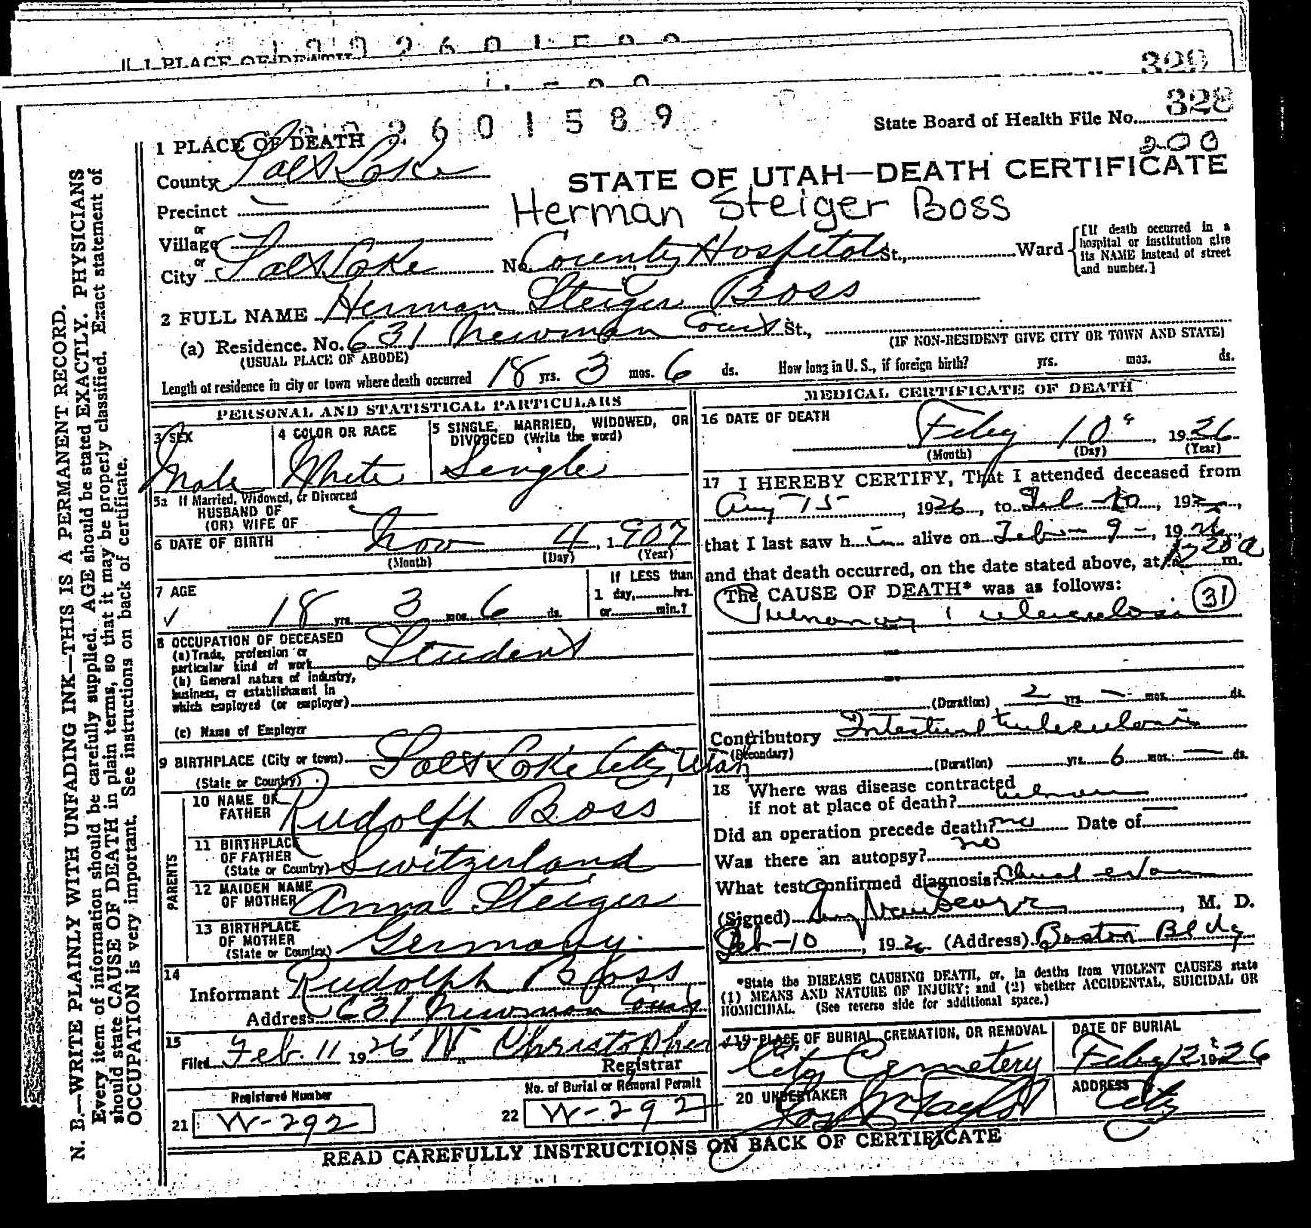 328
2601589
State Board of Health File No. 328
200
1 PLACE OF DEATH
County Salt Lake
STATE OF UTAH—DEATH CERTIFICATE
Precinct
Herman Steiger Boss
or
Village
or
City Salt Lake No. County Hospital St., Ward
[If death occurred in a hospital or institution give its NAME instead of street and number.]
2 FULL NAME Herman Steiger Boss
(a) Residence. No. 631 Newman Court St.,
(USUAL PLACE OF ABODE) (IF NON-RESIDENT GIVE CITY OR TOWN AND STATE)
Length of residence in city or town where death occurred 18 yrs. 3 mos. 6 ds. How long in U. S., if foreign birth? yrs. mos. ds.
PERSONAL AND STATISTICAL PARTICULARS
3 SEX
Male
4 COLOR OR RACE
White
5 SINGLE, MARRIED, WIDOWED, OR DIVORCED (Write the word)
Single
5a If Married, Widowed, or Divorced
HUSBAND OF
(OR) WIFE OF
6 DATE OF BIRTH Nov 4, 1907
(Month) (Day) (Year)
7 AGE
18 yrs. 3 mos. 6 ds.
If LESS than
1 day, hrs.
or min.?
8 OCCUPATION OF DECEASED
(a) Trade, profession or
particular kind of work Student
(b) General nature of industry,
business, or establishment in
which employed (or employer)
(c) Name of Employer
9 BIRTHPLACE (City or town) Salt Lake City, Utah
(State or Country)
PARENTS
10 NAME OF
FATHER Rudolph Boss
11 BIRTHPLACE
OF FATHER
(State or Country) Switzerland
12 MAIDEN NAME
OF MOTHER Anna Steiger
13 BIRTHPLACE
OF MOTHER
(State or Country) Germany.
14
Informant Rudolph Boss
Address 631 Newman Court
15
Filed Feb. 11 1926 W. Christopher
Registrar
Registered Number
21 W-292
No. of Burial or Removal Permit
22 W-292
MEDICAL CERTIFICATE OF DEATH
16 DATE OF DEATH
Feby 10" 1926
(Month) (Day) (Year)
17 I HEREBY CERTIFY, That I attended deceased from
Aug 15, 1926, to Feb-10, 192
that I last saw h im alive on Feb-9-, 1926
and that death occurred, on the date stated above, at 1220a m.
The CAUSE OF DEATH* was as follows:
Pulmonary Tuberculosis 31
(Duration) 2 yrs. — mos. ds.
Contributory Intestinal tuberculosis
(Secondary)
(Duration) yrs. 6 mos. — ds.
18 Where was disease contracted
if not at place of death? unknown
Did an operation precede death? no Date of —
Was there an autopsy? no
What test confirmed diagnosis?
(Signed) , M. D.
Feb-10, 1926 (Address) Boston Bldg
*State the DISEASE CAUSING DEATH, or, in deaths from VIOLENT CAUSES state
(1) MEANS AND NATURE OF INJURY; and (2) whether ACCIDENTAL, SUICIDAL OR
HOMICIDAL. (See reverse side for additional space.)
19 PLACE OF BURIAL, CREMATION, OR REMOVAL
City Cemetery
DATE OF BURIAL
Feby 12 1926
20 UNDERTAKER
Jos. Wm Taylor
ADDRESS
City
READ CAREFULLY INSTRUCTIONS ON BACK OF CERTIFICATE
N. B.—WRITE PLAINLY WITH UNFADING INK—THIS IS A PERMANENT RECORD.
Every item of information should be carefully supplied. AGE should be stated EXACTLY. PHYSICIANS
should state CAUSE OF DEATH in plain terms, so that it may be properly classified. Exact statement of
OCCUPATION is very important. See instructions on back of certificate.